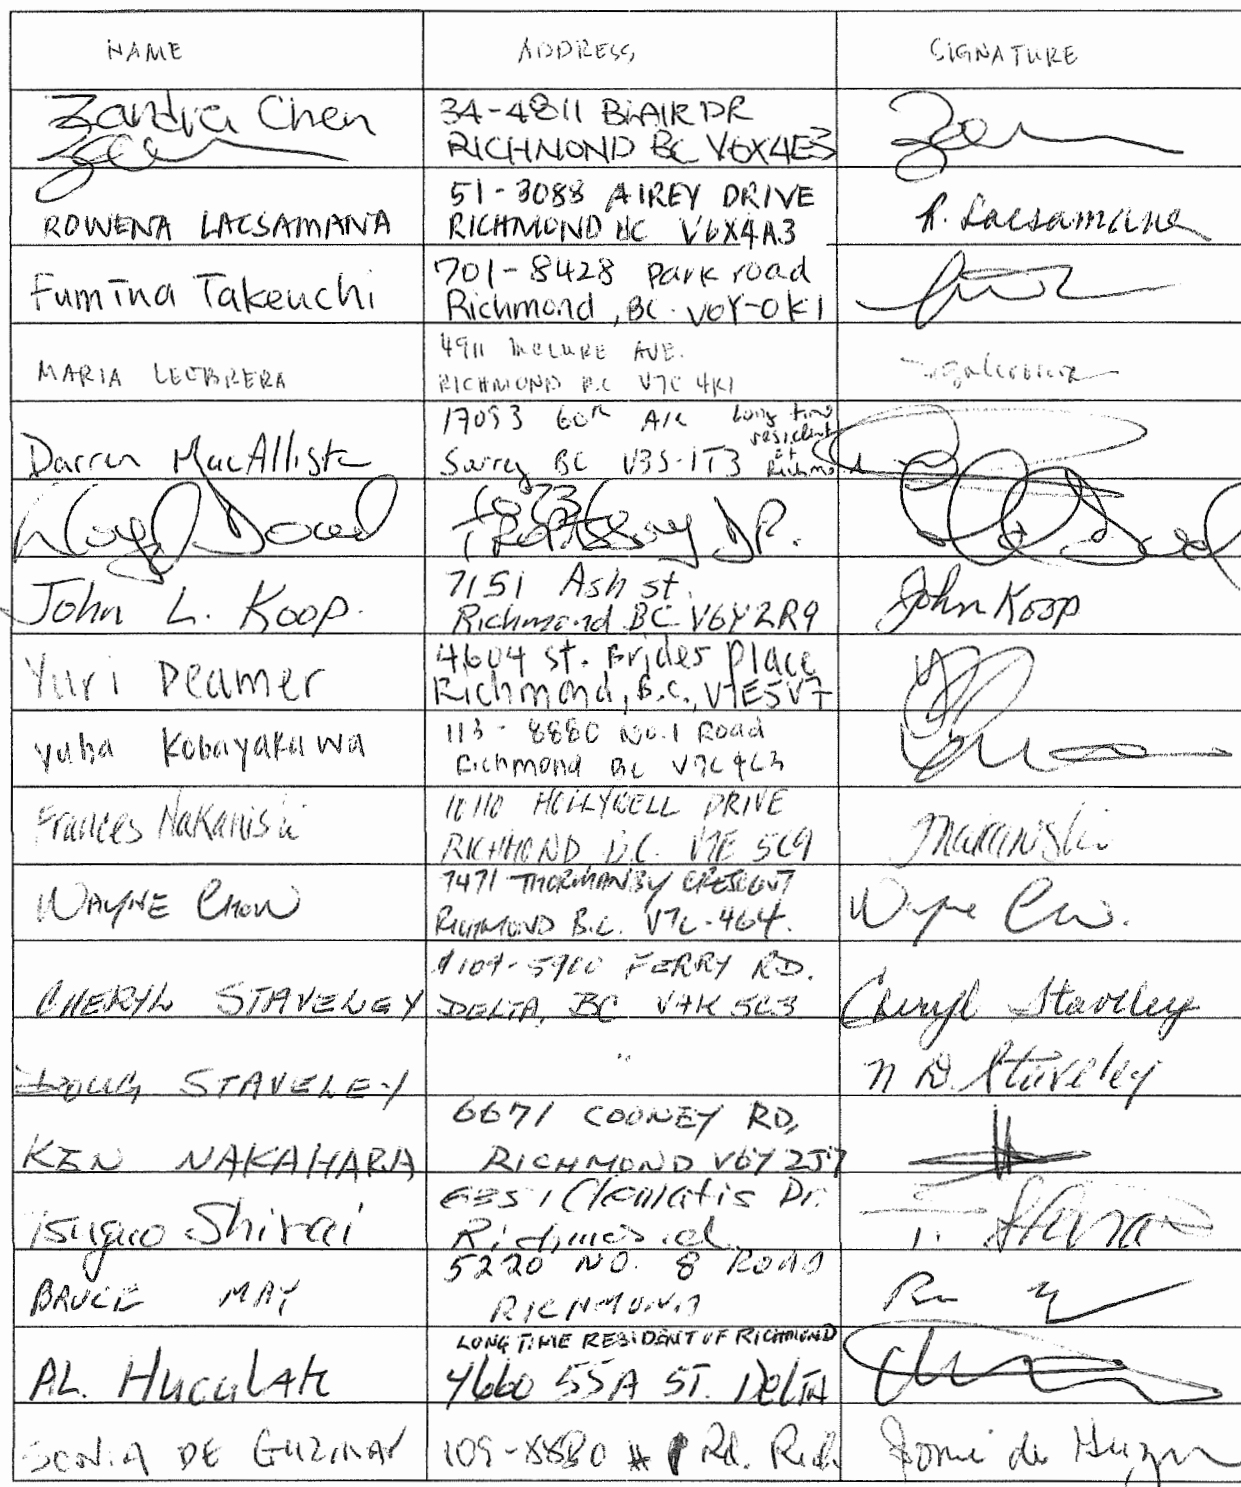 NAME ADDRESS SIGNATURE
Zandra Chen
34-4811 BLAIR DR
RICHMOND BC V6X4E3
ROWENA LACSAMANA
51-3088 AIREY DRIVE
RICHMOND BC V6X4A3
R. Lacsamana
Fumina Takeuchi
701-8428 park road
Richmond, BC. V6Y-0K1
MARIA LECBRERA
4911 McCLURE AVE.
RICHMOND B.C V7C 4K1
Darren MacAllister
17093 60th Ave
Surrey BC V3S-1T3
Long time
resident
of
Richmond
DR.
John L. Koop.
7151 Ash st.
Richmond BC V6Y2R9
John Koop
Yuri Deamer
4604 St. Brides Place
Richmond, B.C., V7E5V7
Yuba Kobayakawa
113 - 8880 No.1 Road
Richmond BC V7C4C3
Frances Nakanishi
HOLLYWELL DRIVE
RICHMOND B.C. V7E 5C9
Nakanishi
WAYNE CHOW
7471 THORMANBY CRESCENT
RICHMOND B.C. V7C-4G4.
Wayne Chow.
CHERYL STAVELEY
#109-5900 FERRY RD.
DELTA, BC V4K 5C3
Cheryl Staveley
DOUG STAVELEY
"
N D. Staveley
KEN NAKAHARA
6671 COONEY RD,
RICHMOND V6Y 2J7
Tsuguo Shirai
6351 Clematis Dr.
Richmond
T. Shirai
BRUCE MAY
5220 NO. 8 ROAD
RICHMOND
AL. Huculak
LONG TIME RESIDENT OF RICHMOND
4660 55A ST. DELTA
SONIA DE GUZMAN
109-8880 # 1 Rd. Rich.
Sonia de Guzman